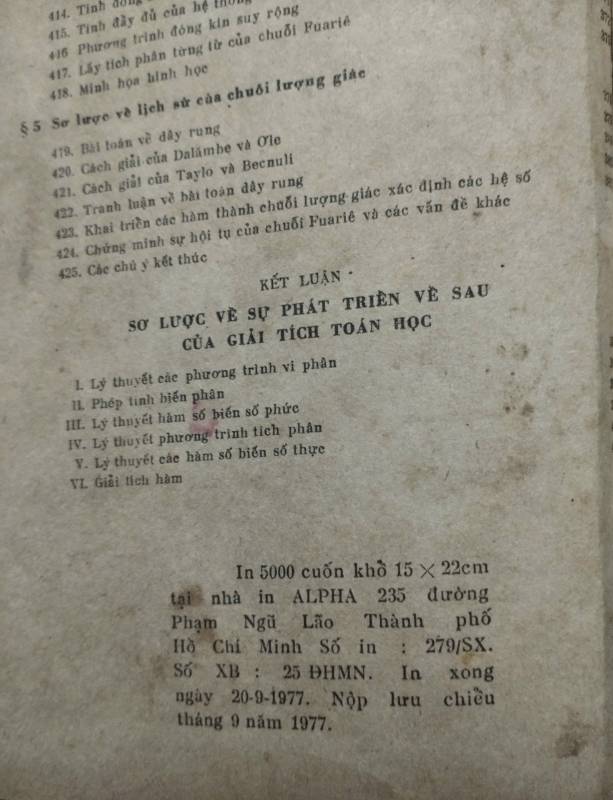 414. Tính đóng
415. Tính đầy đủ của hệ thống
416 Phương trình đóng kín suy rộng
417. Lấy tích phân từng từ của chuỗi Fuariê
418. Minh họa hình học
§ 5 Sơ lược về lịch sử của chuỗi lượng giác
419. Bài toán về dây rung
420. Cách giải của Dalămbe và Ơle
421. Cách giải của Taylo và Becnuli
422. Tranh luận về bài toán dây rung
423. Khai triển các hàm thành chuỗi lượng giác xác định các hệ số
424. Chứng minh sự hội tụ của chuỗi Fuariê và các vấn đề khác
425. Các chú ý kết thúc
KẾT LUẬN
SƠ LƯỢC VỀ SỰ PHÁT TRIỂN VỀ SAU
CỦA GIẢI TÍCH TOÁN HỌC
I. Lý thuyết các phương trình vi phân
II. Phép tính biến phân
III. Lý thuyết hàm số biến số phức
IV. Lý thuyết phương trình tích phân
V. Lý thuyết các hàm số biến số thực
VI. Giải tích hàm
In 5000 cuốn khổ 15 × 22cm
tại nhà in ALPHA 235 đường
Phạm Ngũ Lão Thành phố
Hồ Chí Minh Số in : 279/SX.
Số XB : 25 ĐHMN. In xong
ngày 20-9-1977. Nộp lưu chiều
tháng 9 năm 1977.